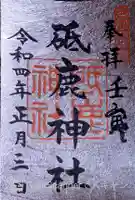 奉拝 壬寅
砥鹿神社
令和四年正月三日